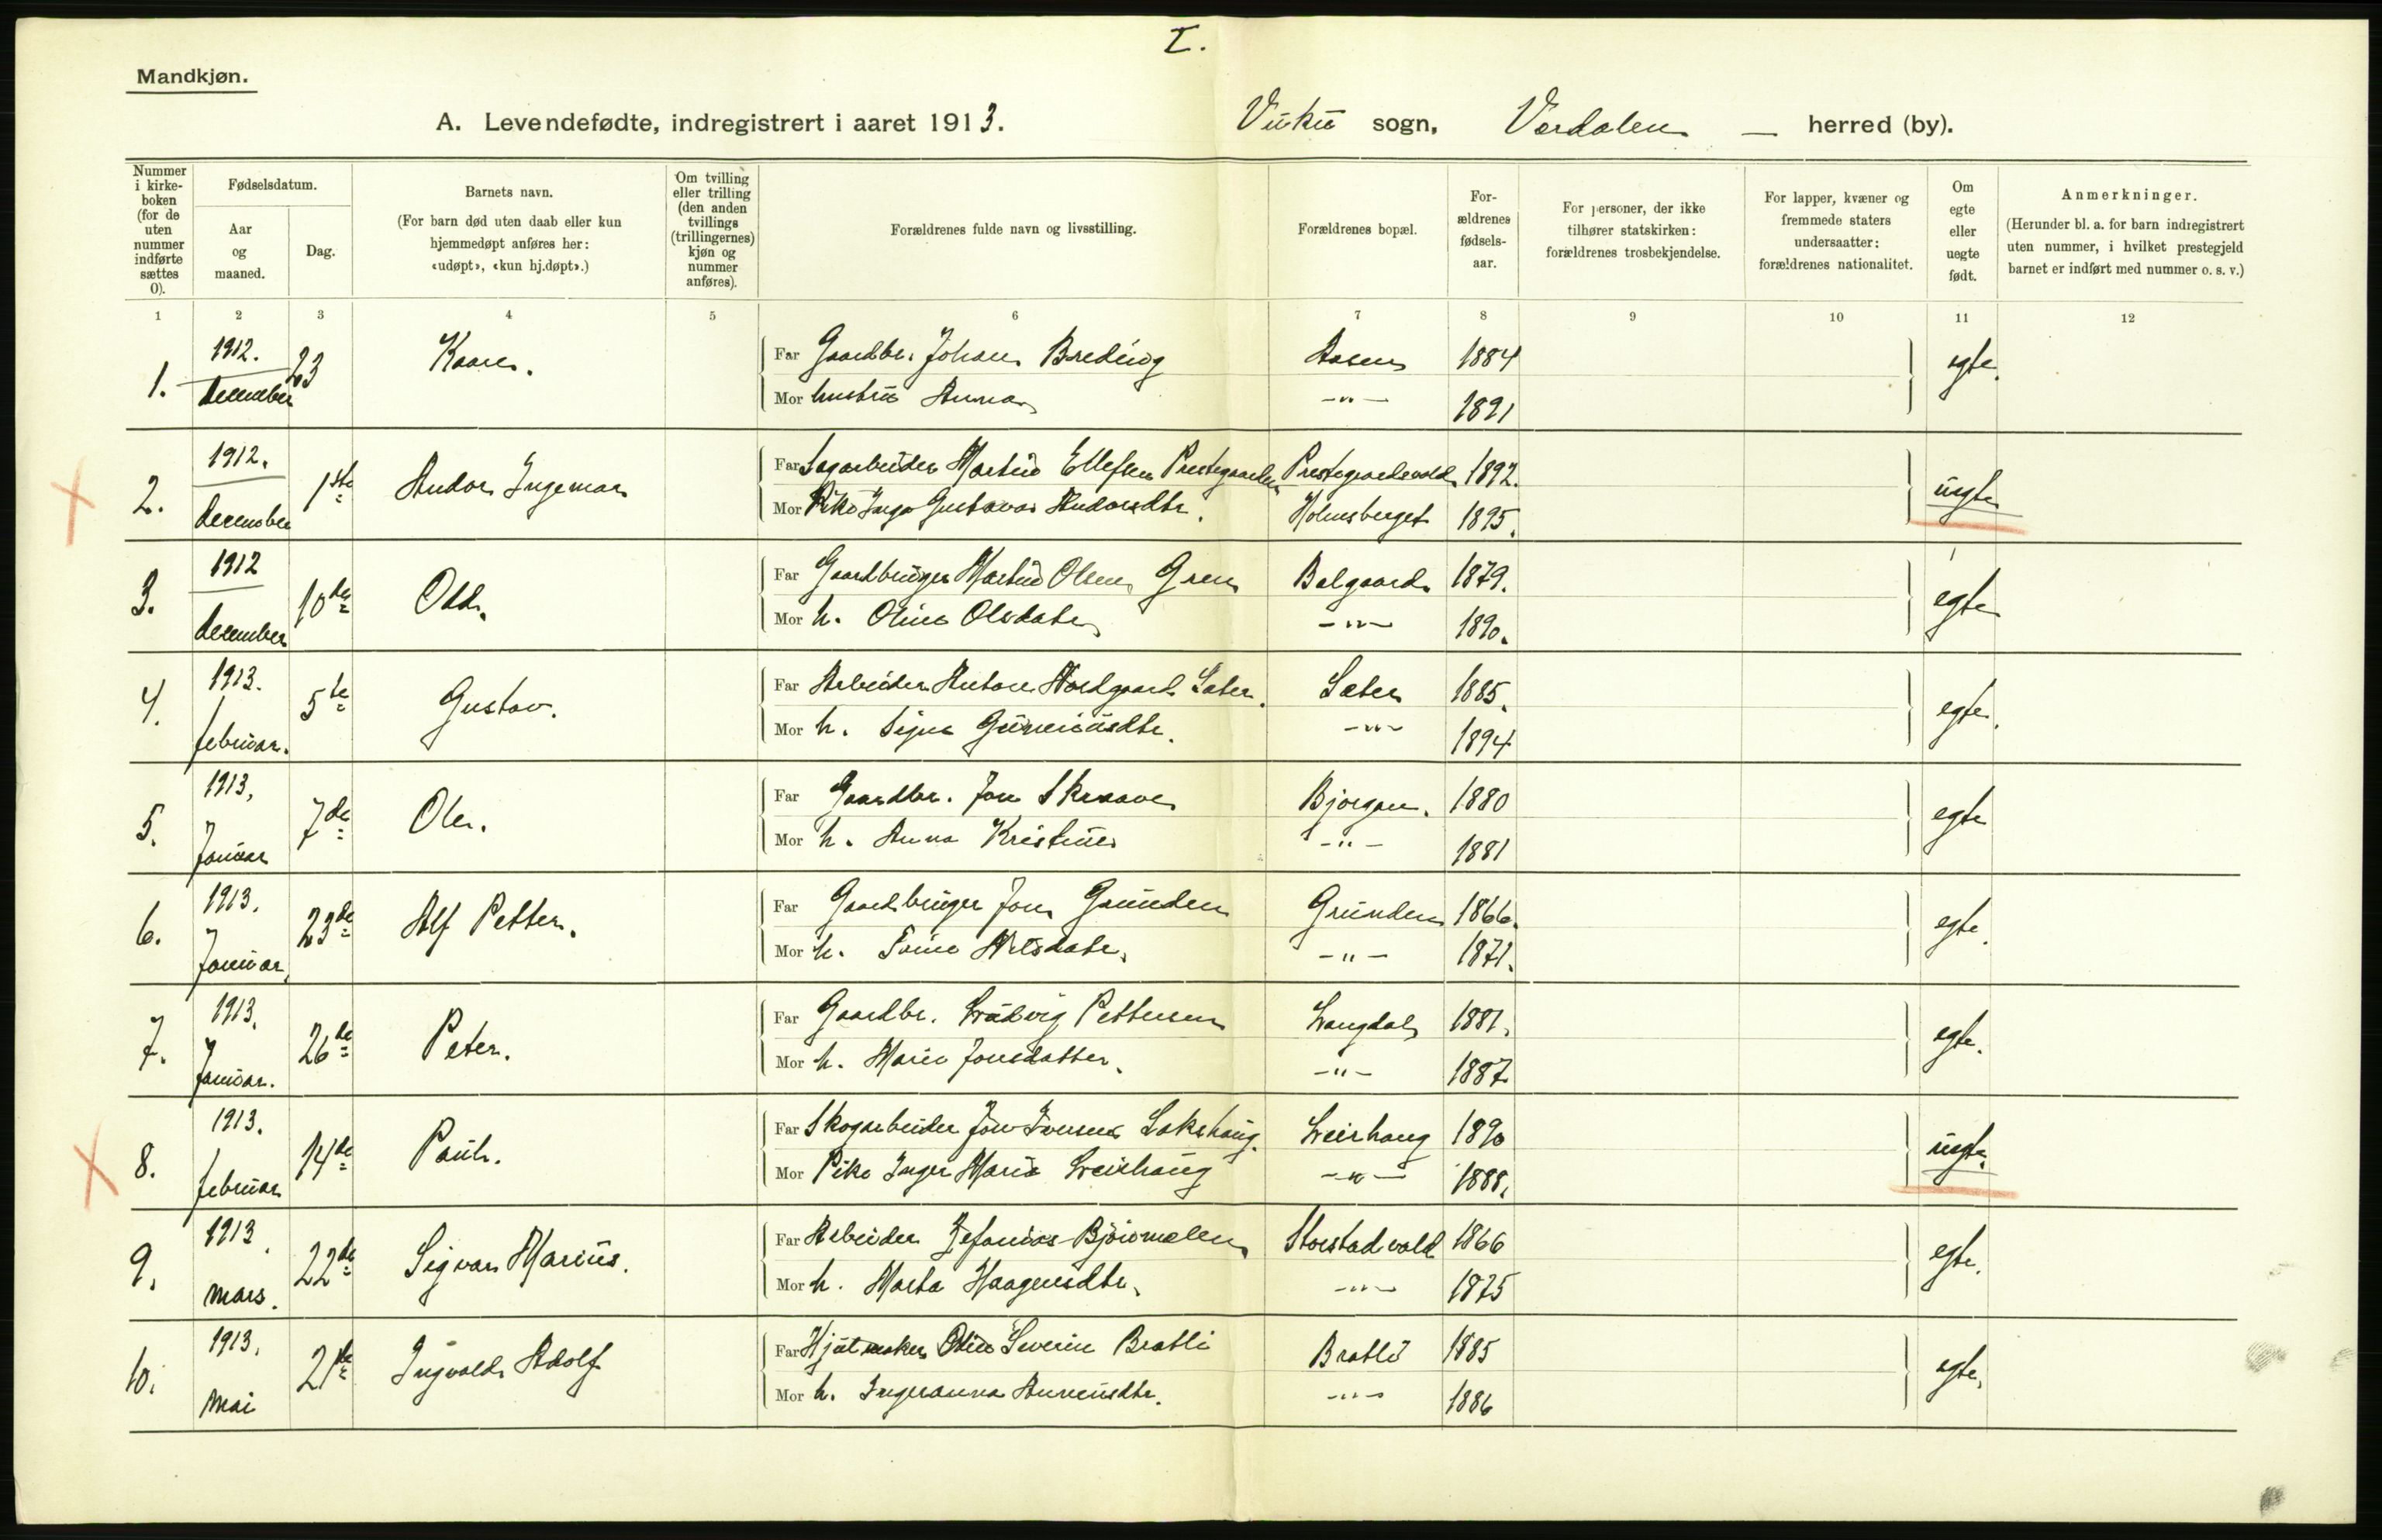 I.
Mandkjøn.
A. Levendefødte, indregistrert i aaret 1913. Vuku sogn, Værdalen — herred (by).
Nummer i kirke-boken (for de uten nummer indførte sættes 0).
Fødselsdatum.
Aar og maaned.
Dag.
Barnets navn.
(For barn død uten daab eller kun hjemmedøpt anføres her: «udøpt», «kun hj.døpt».)
Om tvilling eller trilling (den anden tvillings (trillingernes) kjøn og nummer anføres).
Forældrenes fulde navn og livsstilling.
Forældrenes bopæl.
For-ældrenes fødsels-aar.
For personer, der ikke tilhører statskirken: forældrenes trosbekjendelse.
For lapper, kvæner og fremmede staters undersaatter: forældrenes nationalitet.
Om egte eller uegte født.
Anmerkninger.
(Herunder bl. a. for barn indregistrert uten nummer, i hvilket prestegjeld barnet er indført med nummer o. s. v.)
1 2 3 4 5 6 7 8 9 10 11 12
1. 1912. december 23 Kaare. egte.
Far Gaardbr. Johan Breding Aasen 1884
Mor hustru Anna —"— 1891
2. 1912. december 1ste Andor Ingemar uegte
Far Sagarbeider Martin Ellefsen Prestegaarden Prestegaardsvald 1892.
Mor Pike Inga Gustava Andorsdtr. Holmsberget 1895.
3. 1912 december 10de Odd. egte
Far Gaardbruger Martin Olsen Green Balgaard 1879.
Mor h. Oline Olsdatr —"— 1890.
4. 1913. februar. 5te Gustav. egte.
Far Arbeider Anton Nordgaard Sæter. Sæter 1885.
Mor h. Signe Guneriusdtr. —"— 1894
5. 1913, Januar 7de Ole. egte
Far Gaardbr. Jon Skraave Bjørgan. 1880
Mor h. Anna Kristine —"— 1881
6. 1913. Januar, 23de Alf Petter. egte.
Far Gaardbruger Jon Grunden Grunden 1866.
Mor h. —"— 1871.
7. 1913. Januar. 26de Peter. egte.
Far Gaardbr. Ludvig Pettersen Langdal 1881.
Mor h. Marie Jonsdatter. —"— 1887
8. 1913. februar 14de Paul. uegte.
Far Skogarbeider Jon Iversen Lakshaug. Leirhaug 1890
Mor Pike Inger Maria Leirhaug —"— 1888.
9. 1913. mars. 22de Sigvar Marius. egte.
Far Arbeider Zefanias Bjørnmelen Storstadvald 1866
Mor h. Marta Haagensdtr. —"— 1875
10. 1913. mai 21de Ingvald Adolf egte.
Far Hjulmaker Odin Severin Bratli Bratli 1885
Mor h. Ingeranna Anneusdtr. —"— 1886